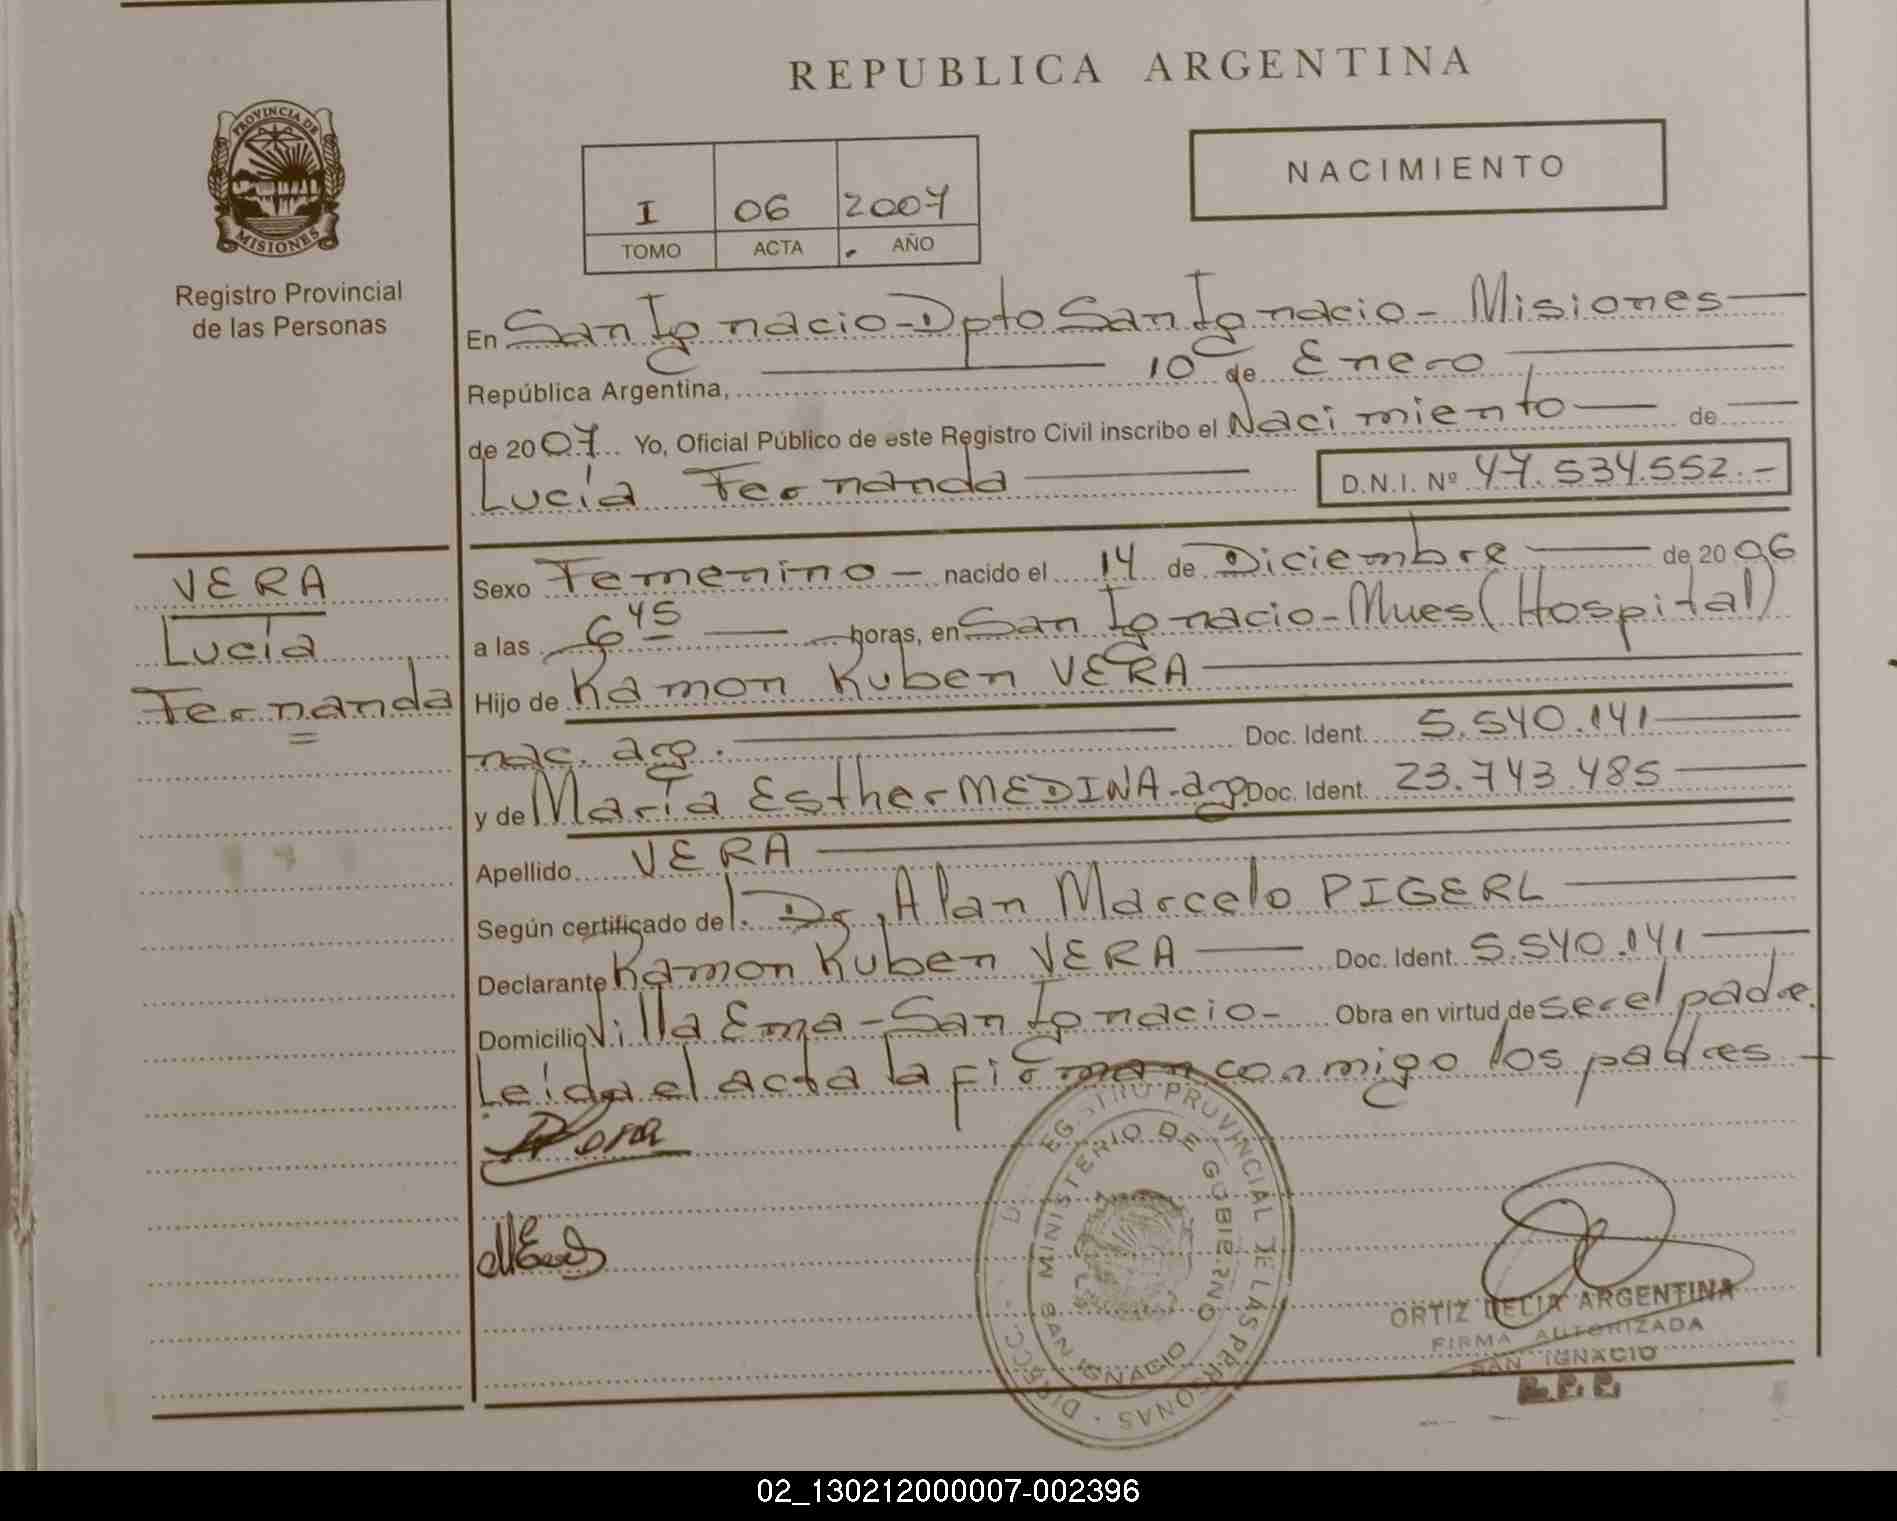 REPUBLICA ARGENTINA
PROVINCIA DE
MISIONES
Registro Provincial
de las Personas
NACIMIENTO
I 06 2007
TOMO ACTA AÑO
En San Ignacio - Dpto San Ignacio - Misiones
República Argentina, 10 de Enero
de 2007 Yo, Oficial Público de este Registro Civil inscribo el Nacimiento de
Lucía Fernanda D.N.I. Nº 47.534.552.-
VERA
Lucía
Fernanda
Sexo Femenino - nacido el 14 de Diciembre de 2006
a las 6 45 horas, en San Ignacio - Mnes (Hospital)
Hijo de Ramon Ruben VERA
nac. arg. Doc. Ident. 5.540.141
y de María Esther MEDINA - arg. Doc. Ident. 23.743.485
Apellido VERA
Según certificado del Dr. Alan Marcelo PIGERL
Declarante Ramon Ruben VERA Doc. Ident. 5.540.141
Domicilio Villa Ema - San Ignacio - Obra en virtud de ser el padre.
Leída el acta la firman conmigo los padres -
REGISTRO PROVINCIAL DE LAS PERSONAS
MINISTERIO DE GOBIERNO
SAN IGNACIO
ORTIZ DELIA ARGENTINA
FIRMA AUTORIZADA
SAN IGNACIO
02_130212000007-002396